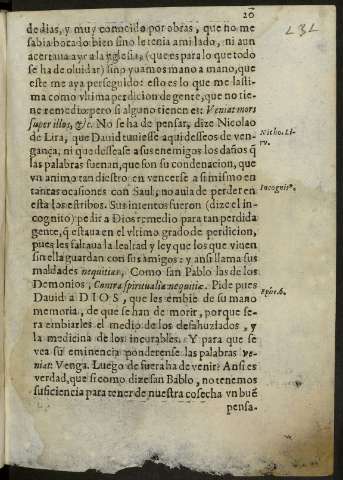 20
dedias, y muy conocido por obras, que no me
sabia bocado bien sino le tenia a mi lado, ni aun
acertaua a yr a la yglesia, (que es para lo que todo
se ha de oluidar) sino yuamos mano a mano, que
este me aya perseguido: esto es lo que me lasti-
ma como vltima perdicion de gente, que no tie-
ne remedio: pero si alguno tienen es: Veniat mors
super illos, &c. No se ha de pensar, dize Nicolao
de Lira, que Dauid tuuiesse aqui desseos de ven-
gança, ni que desseasse a sus enemigos los daños q̃
las palabras suenan, que son su condenacion, que
vn animo tan diestro en vencerse a si mismo en
tantas ocasiones con Saul, no auia de perder en
esta los estribos. Sus intentos fueron (dize el in-
cognito) pedir a Dios remedio para tan perdida
gente, q̃ estaua en el vltimo grado de perdicion,
pues les faltaua la lealtad y ley que los que viuen
sin ella guardan con sus amigos: y ansi llama sus
maldades nequitias, Como san Pablo las de los
Demonios, Contra spiritualia nequitie. Pide pues
Dauid a DIOS, que les embie de su mano
memoria, de que se han de morir, porque se-
ra embiarles el medio de los desahuziados, y
la medicina de los incurables. Y para que se
vea su eminencia ponderense las palabras ve-
niat: Venga. Luego de fuera ha de venir? Ansi es
verdad, que si como dize san Pablo, no tenemos
suficiencia para tener de nuestra cosecha vn buē
pensa-
Nicho. Li-
rv.
Incognit⁹.
Ephe. 6.